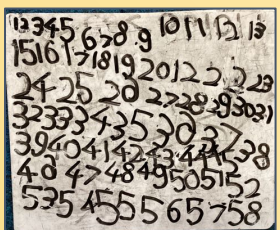 12345 6789 10 11 12 13
1516171819 2012 2 2 23
24 25 26 2728293031
32333435363 7
3940414243444538
46 4748495051 52
535 455565758